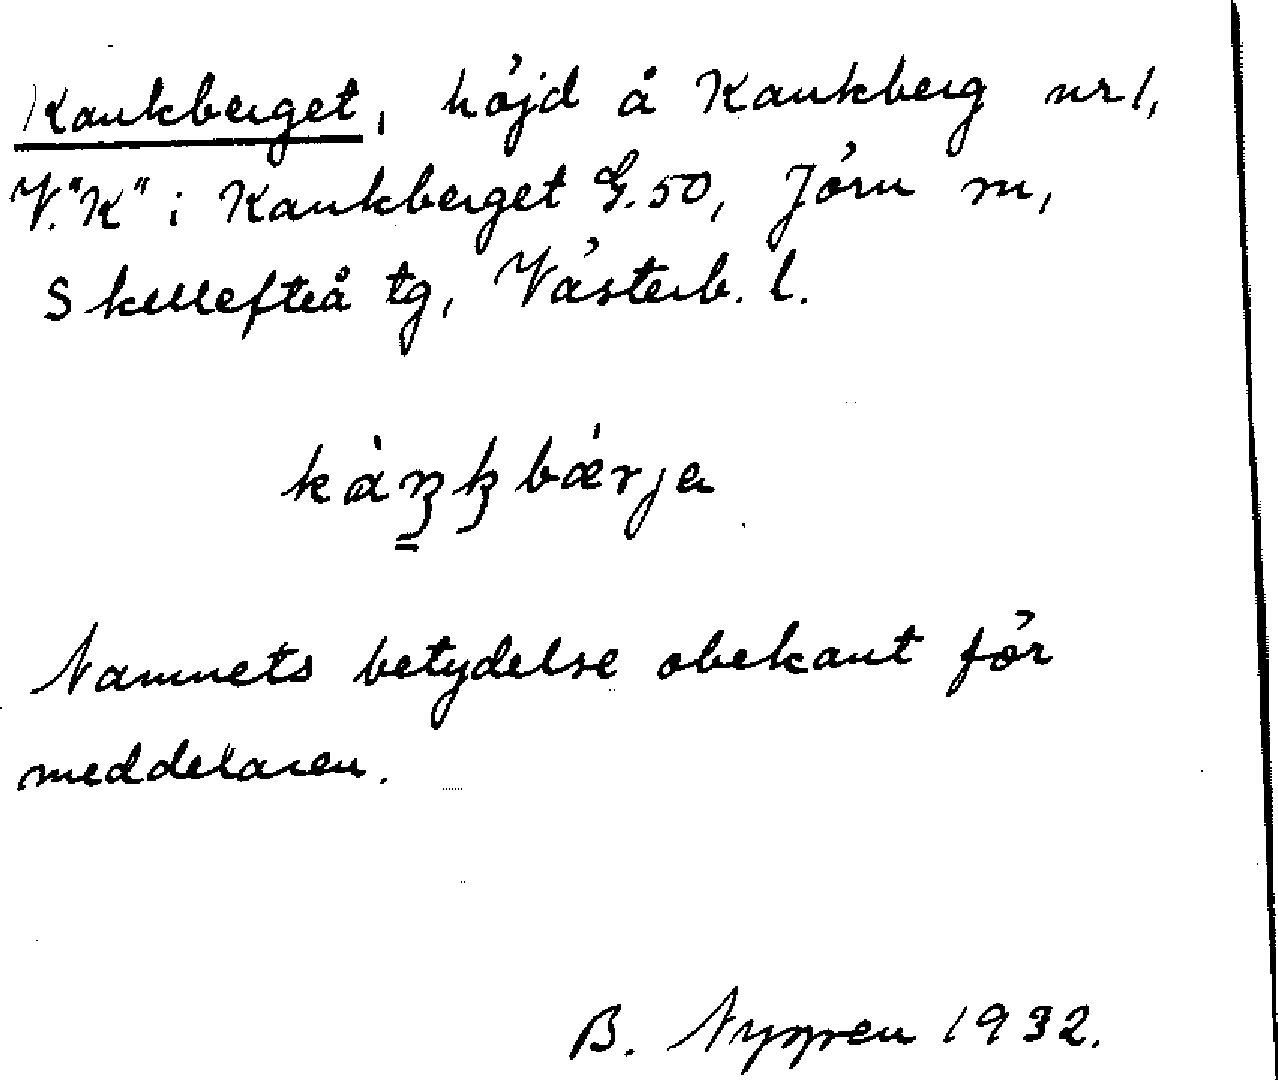 Kankberget, höjd å Kankberg nr 1,
V. "K" i Kankberget G. 50, Jörn sn,
Skellefteå tg, Västerb. l.
kàŋk̨bǽrja
Namnets betydelse obekant för
meddelaren.
B. Nygren 1932.